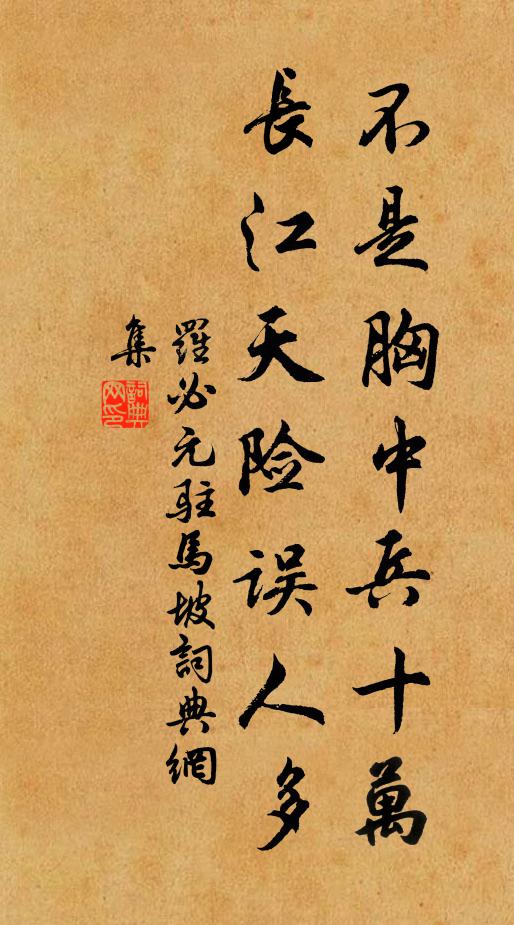 不是胸中兵十萬
長江天险误人多
羅必元駐馬坡詞典網
集
詞典
网印